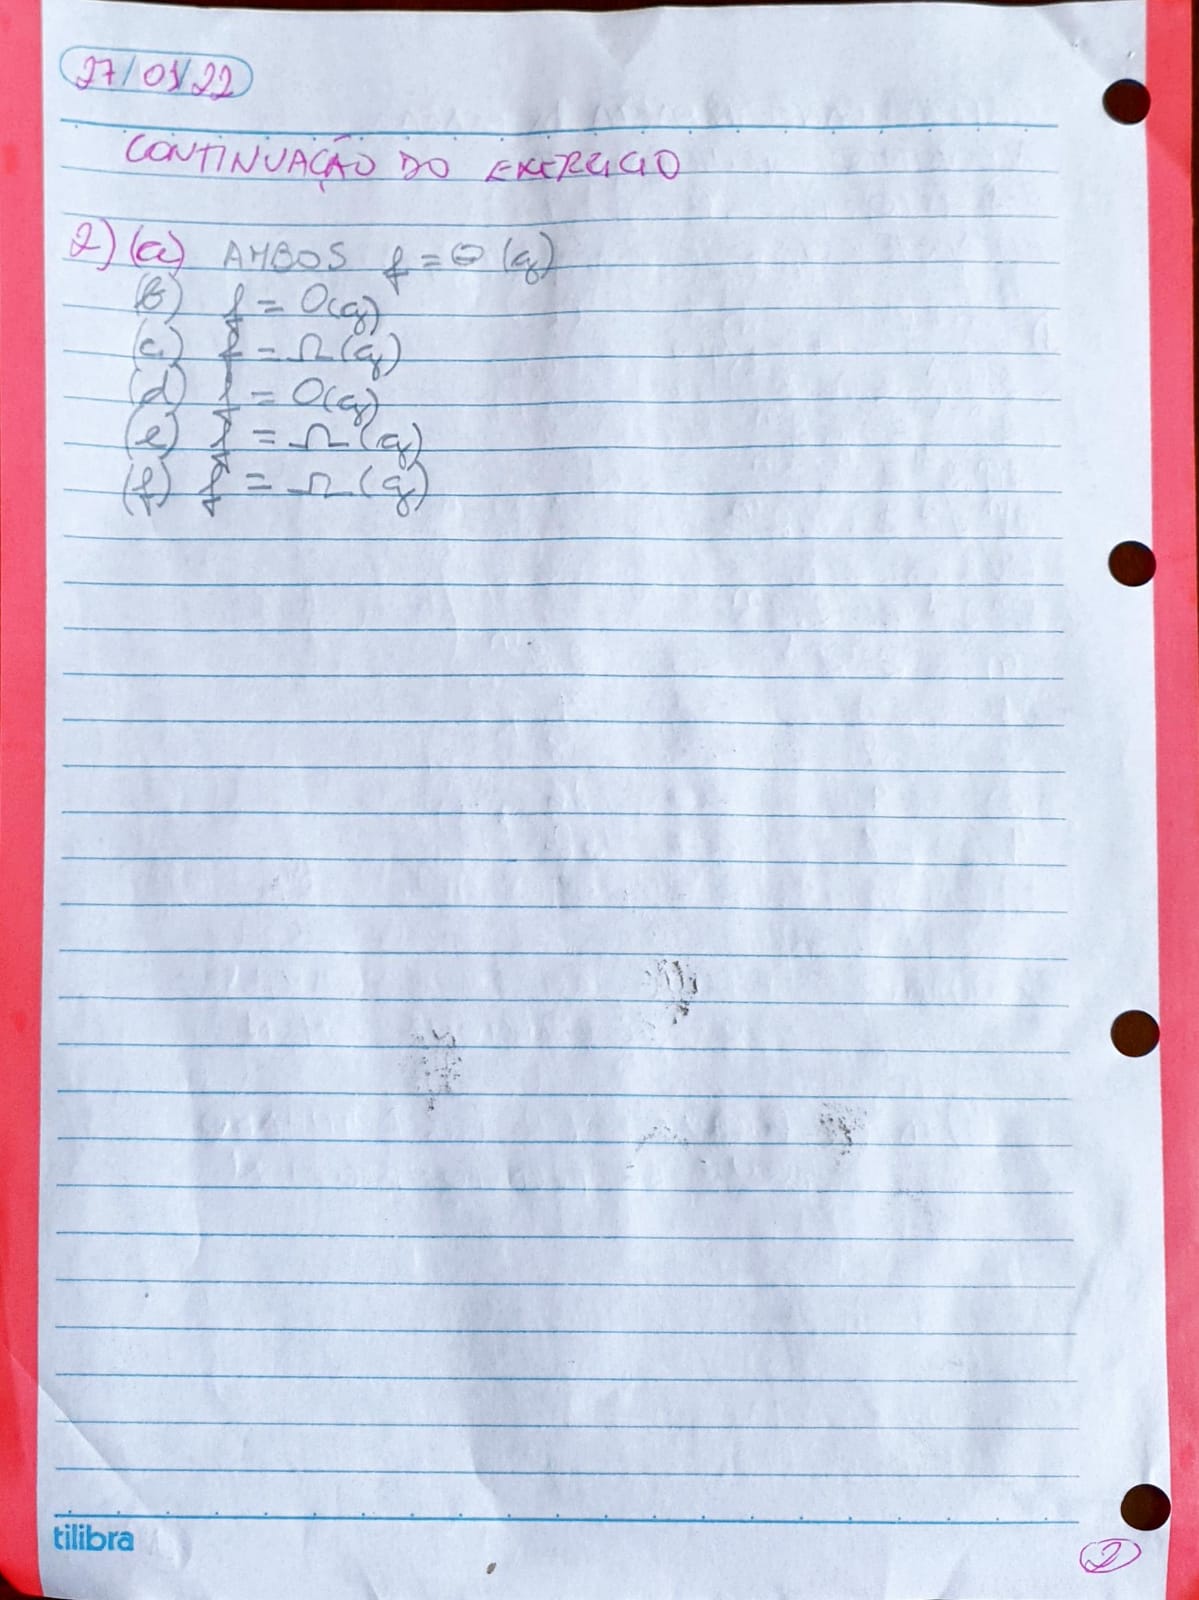 27/01/22
CONTINUAÇÃO DO EXERCICIO
2) (a) AMBOS f = Θ (g)
(b) f = O(g)
(c) f = Ω (g)
(d) f = O(g)
(e) f = Ω (g)
(f) f = Ω (g)
tilibra
2